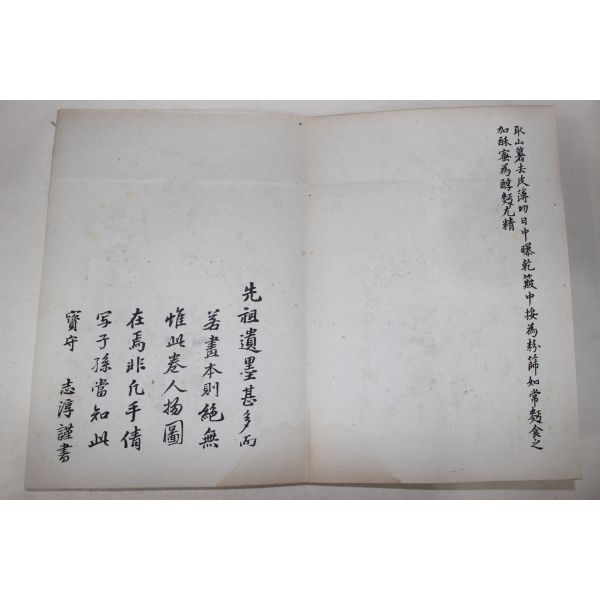 取山薯去皮薄切日中曝乾簸中挼為粉篩如常麪食之
加酥蜜為醇麪尤精
先祖遺墨甚多而
若畫本則絶無
惟此卷人物圖
在焉非凡手倩
写子孫當知此
寳守 志淳謹書